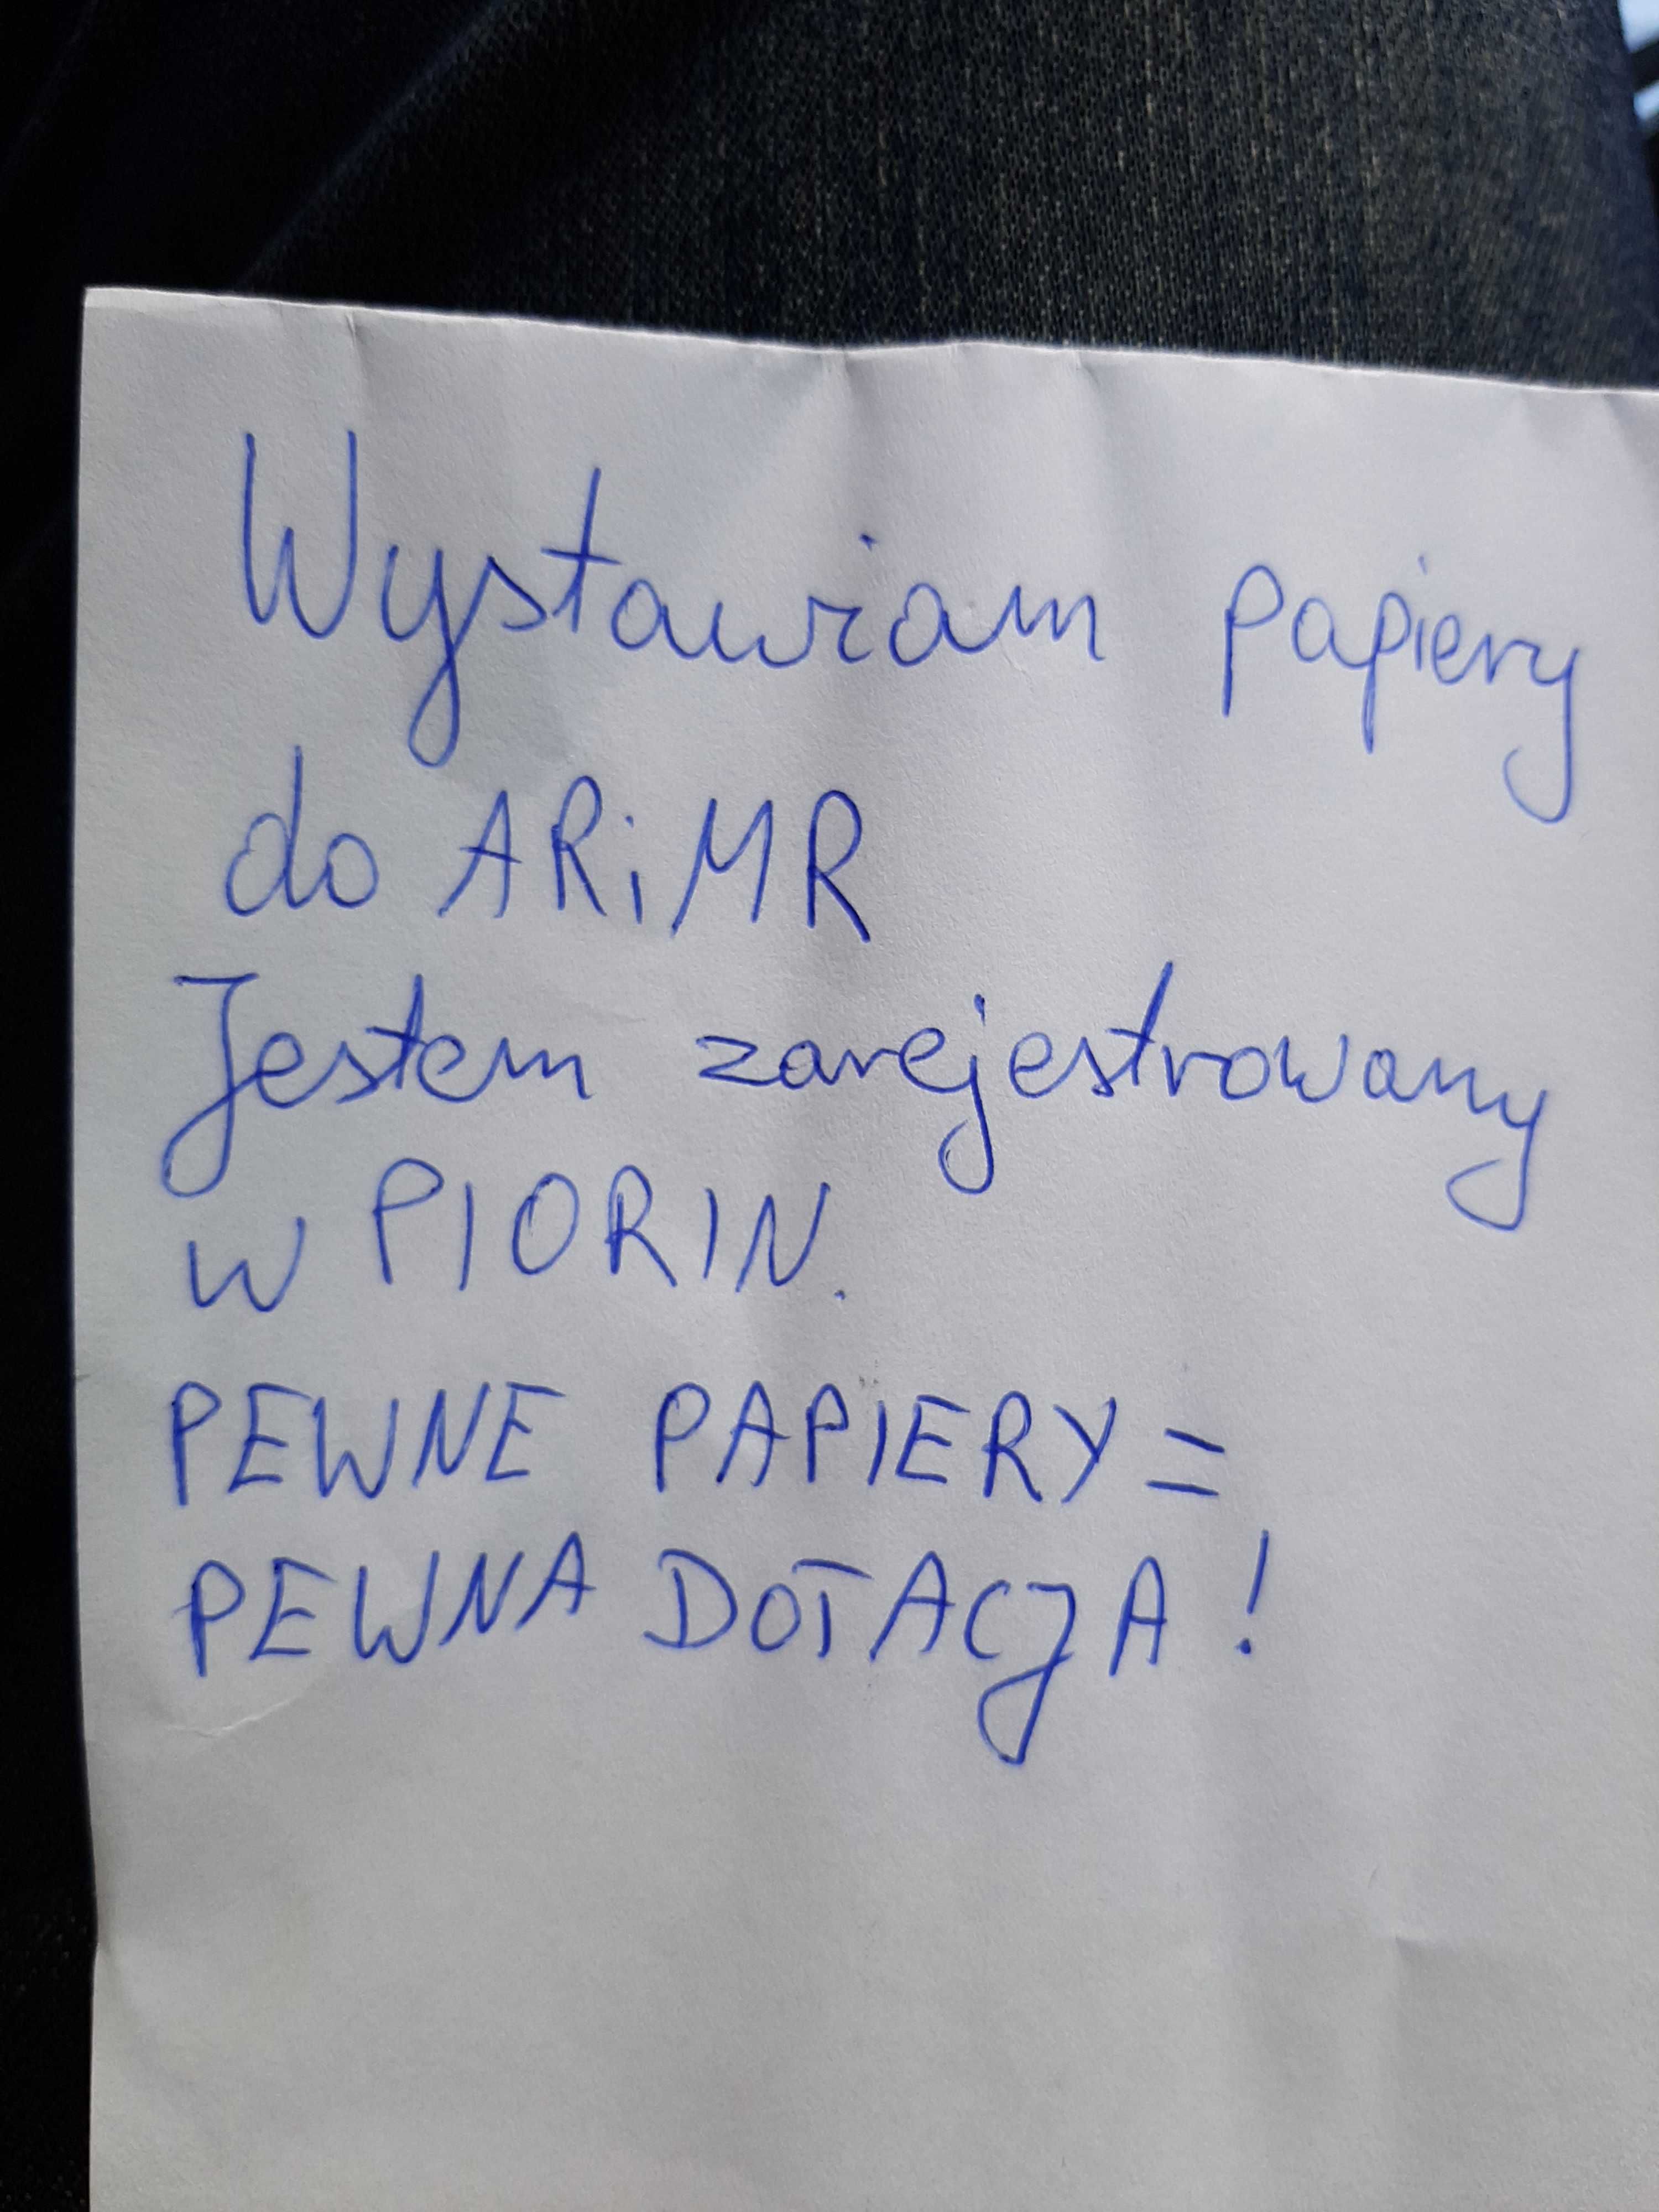 Wystawiam papiery
do ARiMR
Jestem zarejestrowany
w PIORIN.
PEWNE PAPIERY =
PEWNA DOTACJA!